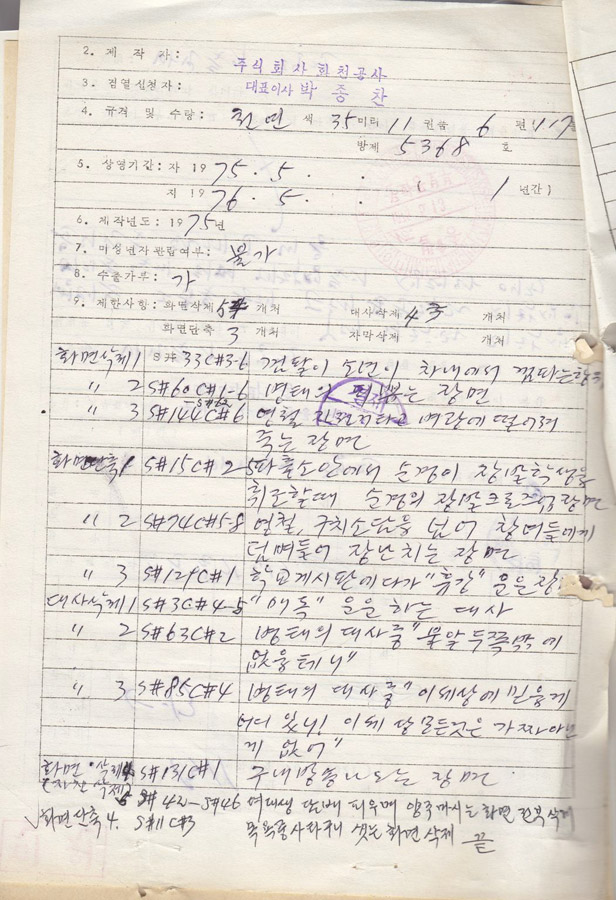 2. 제 작 자: 주식회사 화천공사
3. 검열신청자: 대표이사 박 종 찬
4. 규격 및 수량: 천연 색 35 미터 11 권품 6 편 117
방제 5368 호
5. 상영기간: 자 19 75. 5. . (
지 19 76. 5. . 1 년간)
6. 제작년도: 19 75 년
7. 미성년자 관람여부: 불가
8. 수출가부: 가
9. 제한사항: 화면삭제 개처 대사삭제 4 개처
화면단축 3 개처 자막삭제 개처
화면삭제 1 S#33C#3-6 건달이 소년이 차내에서 껌파는
〃 2 S#60C#1-6 병태의 장면
〃 3 S#144C#6 영철 자전거타고 벼랑에 떨어져
죽는 장면
화면단축 1 S#15C#2-5 파출소안에서 순경이 장발학생을
취조할때 순경의 장발크로즈업 장면
〃 2 S#74C#5-8 영철, 구치소담을 넘어 창녀들에게
덤벼들어 장난치는 장면
〃 3 S#129C#1 학교게시판에다가 "휴강" 운운
대사삭제 1 S#3C#4-5 "매독" 운운 하는 대사
〃 2 S#63C#2 병태의 대사중 "불알 두쪽밖에
없을테니"
〃 3 S#85C#4 병태의 대사중 "이세상에 믿을게
어디 있니! 이세상 모든것은 가짜 아닌
게 없어"
화면 삭제 4 S#131C#1 구내방송나오는 장면.
삭제 5 S#42-S#46 여대생 담배 피우며 맥주마시는 화면 전부 삭제
√화면단축 4. S#11C#3 목욕중 사타구니 씻는 화면 삭제 끝